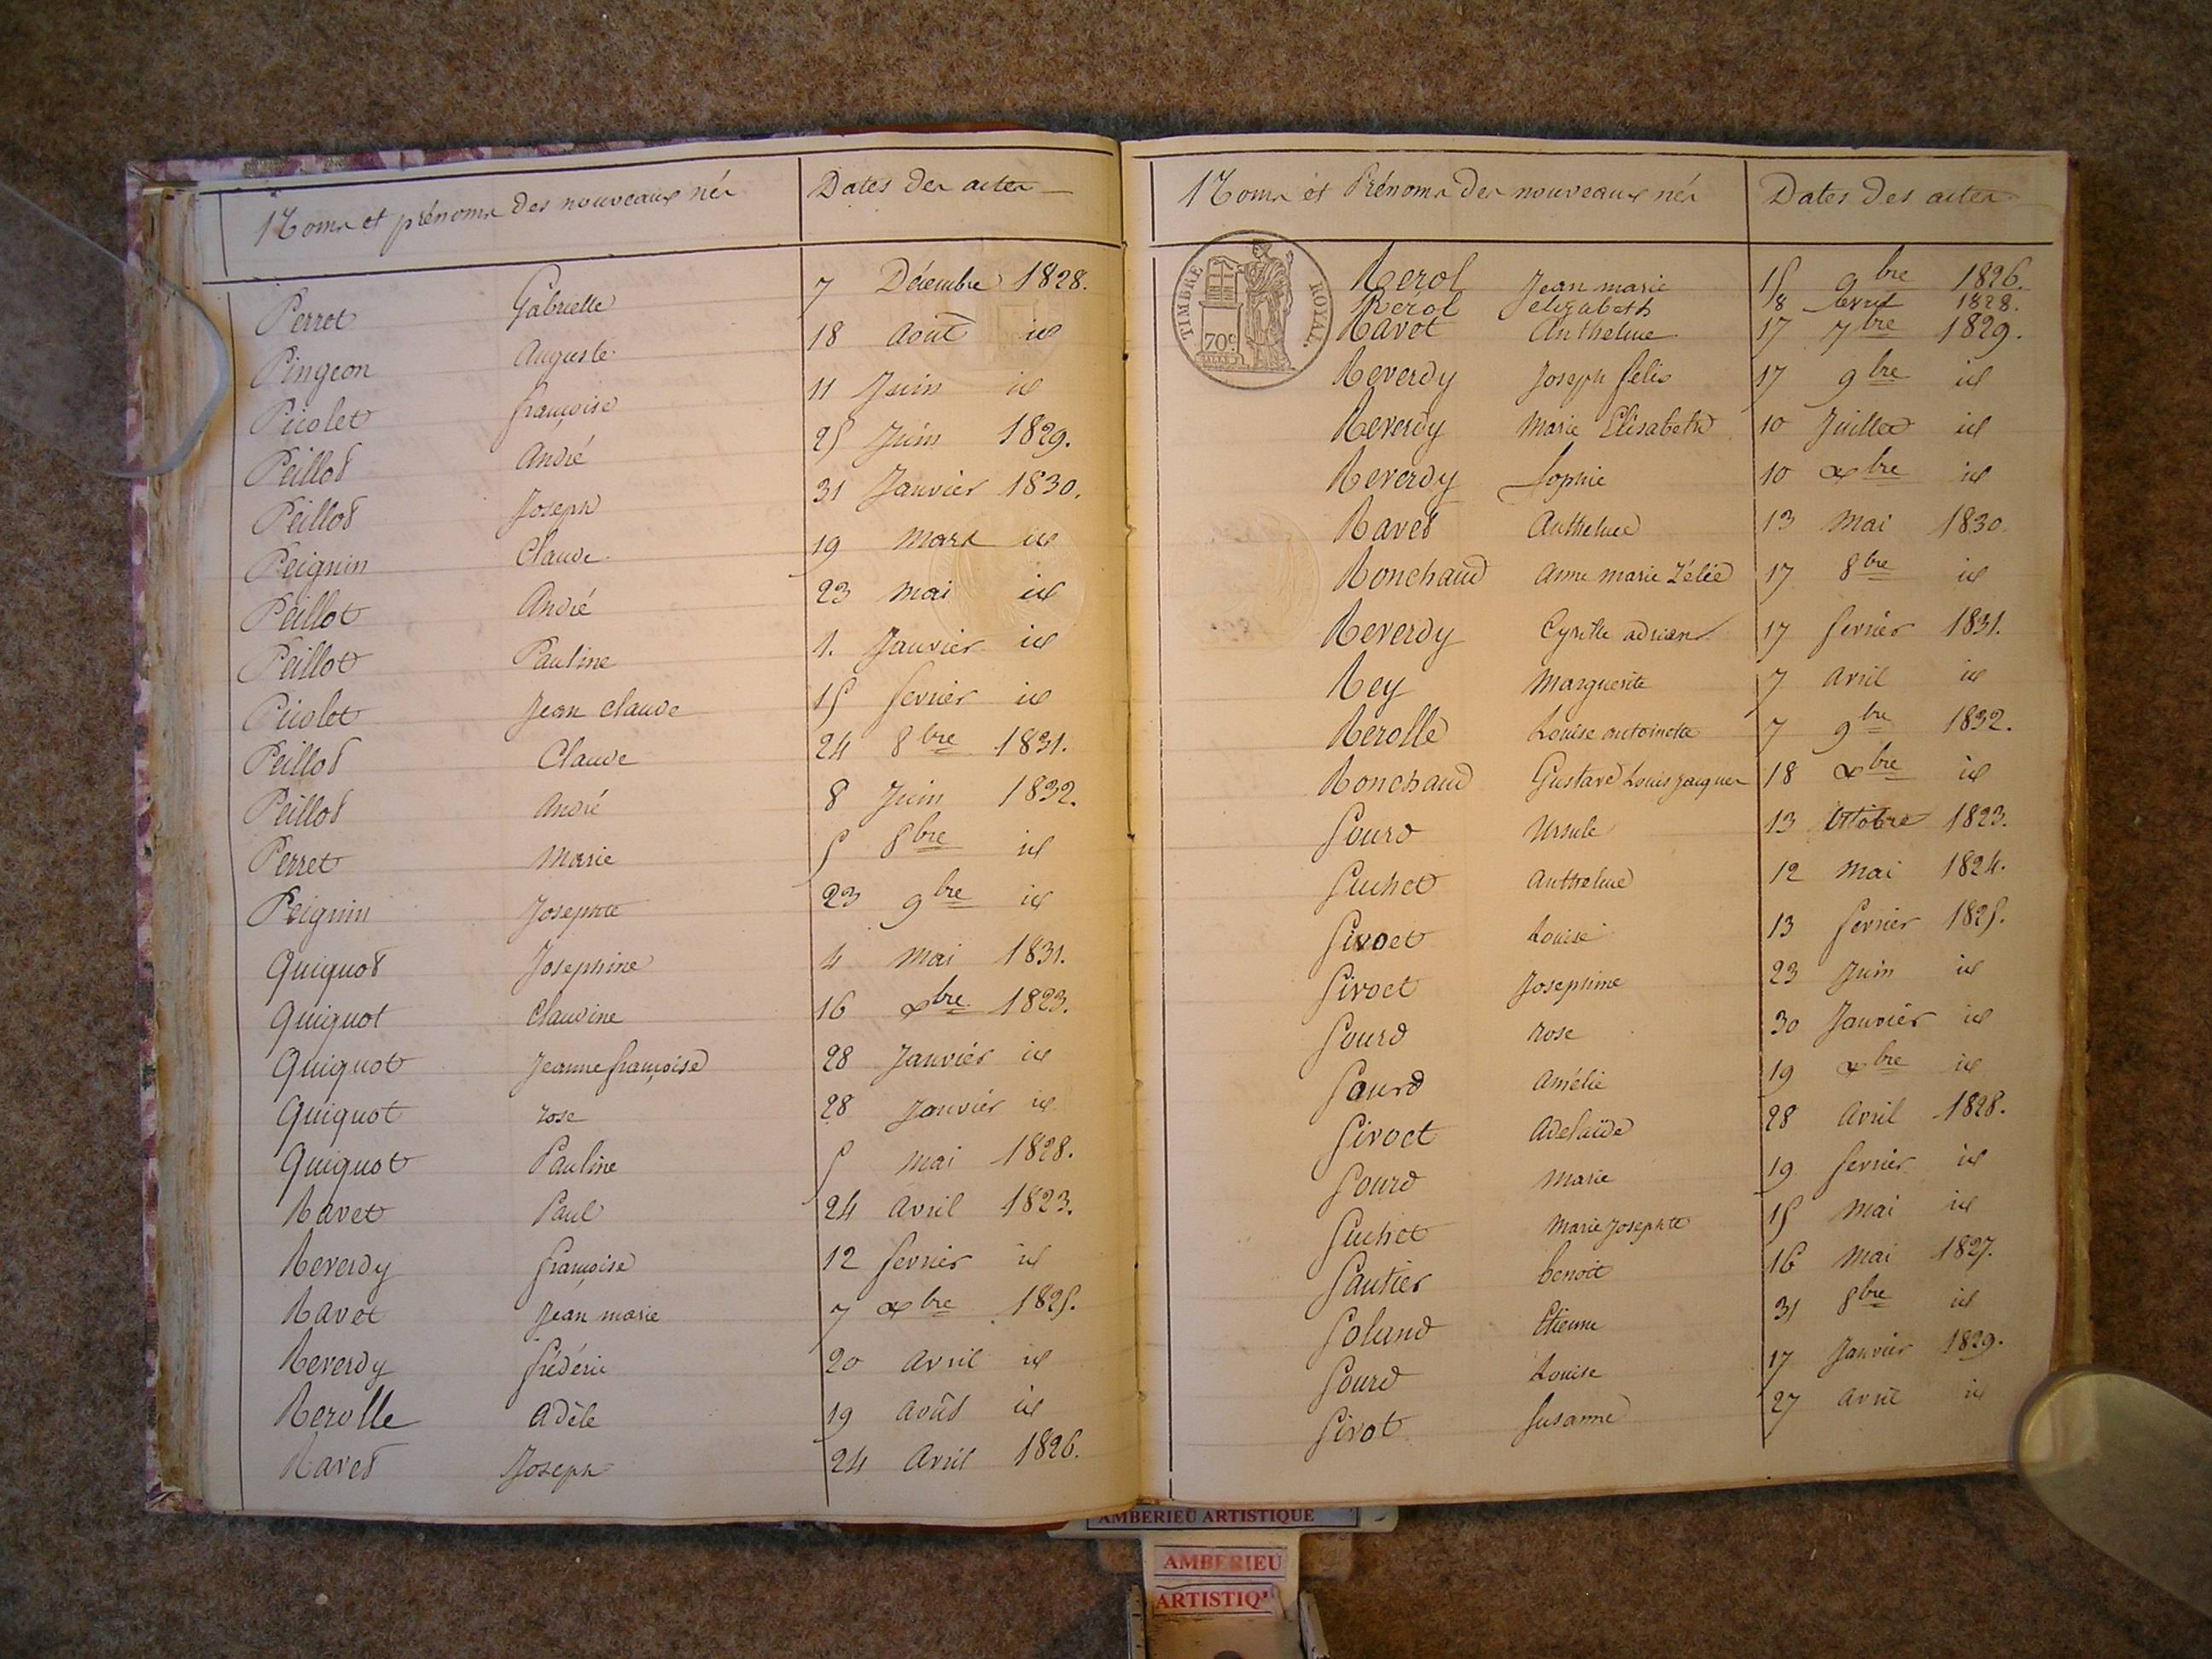 Noms et prénoms des nouveaux nés Dates des actes
Perret Gabrielle 7 Décembre 1828.
Pingeon Auguste 18 août id
Picolet françoise 11 Juin id
Peillod André 25 Juin 1829.
Peillod Joseph 31 Janvier 1830.
Peignin Claude 19 Mars id
Peillot André 23 mai id
Peillot Pauline 1. Janvier id
Picolet Jean Claude 15 fevrier id
Peillod Claude 24 8bre 1831.
Peillod André 8 Juin 1832.
Perret Marie 5 8bre id
Peignin Josephte 23 9bre id
Quiquod Josephine 4 Mai 1831.
Quiquot Claudine 16 xbre 1823.
Quiquot Jeanne françoise 28 Janvier id
Quiquot rose 28 Janvier id
Quiquot Pauline 5 Mai 1828.
Ravet Paul 24 avril 1823.
Reverdy françoise 12 fevrier id
Ravet Jean marie 7 xbre 1825.
Reverdy frédéric 20 avril id
Rerolle Adèle 19 Août id
Raved Joseph 24 Avril 1826.
Noms et Prénoms des nouveaux nés Dates des actes
TIMBRE ROYAL.
70c
Rerol Jean marie 15 9bre 1826.
Rerol elizabeth 8 avril 1828.
Ravet Anthelme 17 7bre 1829.
Reverdy Joseph felix 17 9bre id
Reverdy Marie Elisabeth 10 Juillet id
Reverdy Sophie 10 xbre id
Raved Anthelme 13 Mai 1830
Ronchaud Anne marie Zélie 17 8bre id
Reverdy Cyrille adrien 17 fevrier 1831.
Rey Marguerite 7 avril id
Rerolle Louise antoinette 7 9bre 1832.
Ronchaud Gustave Louis jacques 18 xbre id
Sourd Ursule 13 Octobre 1823.
Suchet Anthelme 12 Mai 1824.
Sivoet Louise 13 fevrier 1825.
Sivoct Josephine 23 Juin id
Sourd rose 30 Janvier id
Sourd Amélie 19 xbre id
Sivoct Adelaïde 28 Avril 1828.
Sourd Marie 19 fevrier id
Suchet Marie Josephte 15 Mai id
Sautier benoit 16 Mai 1827.
Solund Etienne 31 8bre id
Sourd Louise 17 Janvier 1829.
Sivot Susanne 27 avril id
AMBERIEU ARTISTIQUE
AMBERIEU
ARTISTIQU